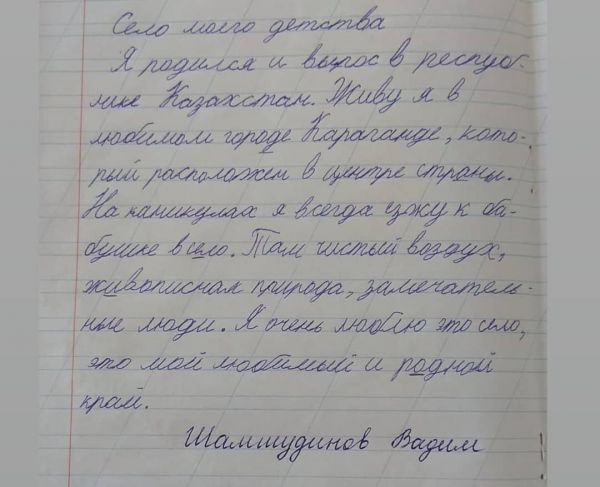 Село моего детства
Я родился и вырос в респуб-
лике Казахстан. Живу я в
любимом городе Караганде, кото-
рый расположен в центре страны.
На каникулах я всегда езжу к ба-
бушке в село. Там чистый воздух,
живописная природа, замечатель-
ные люди. Я очень люблю это село,
это мой любимый и родной
край.
Шамшудинов Вадим